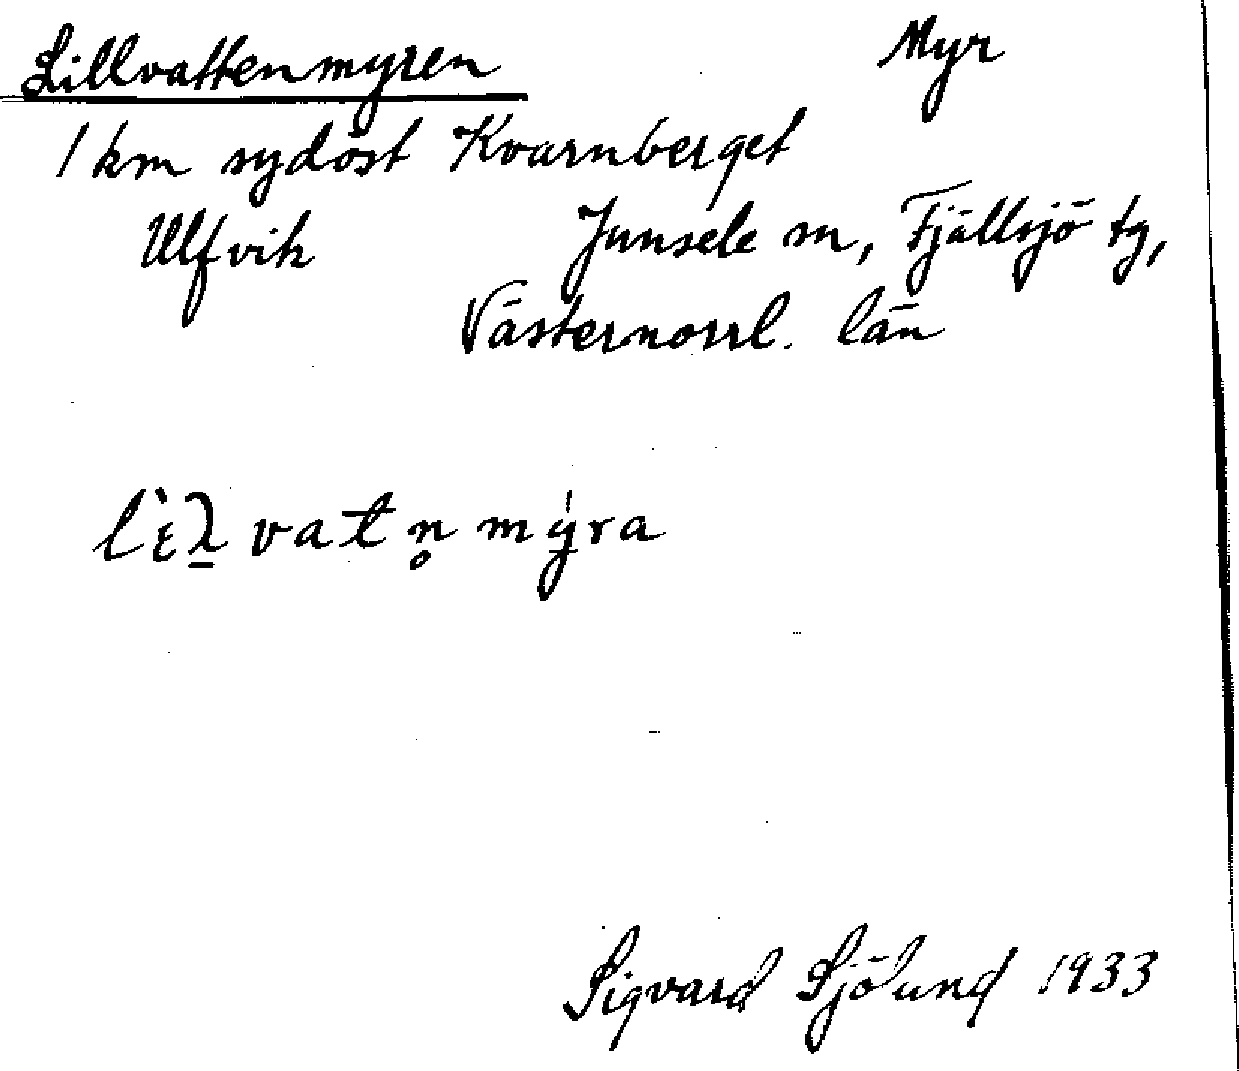 Lillvattenmyren Myr
1 km sydöst Kvarnberget
Ulfvik Junsele sn, Fjällsjö tg,
Västernorrl. län
l'ɛλ̱ vatn̥ mýra
Sigvard Sjölund 1933